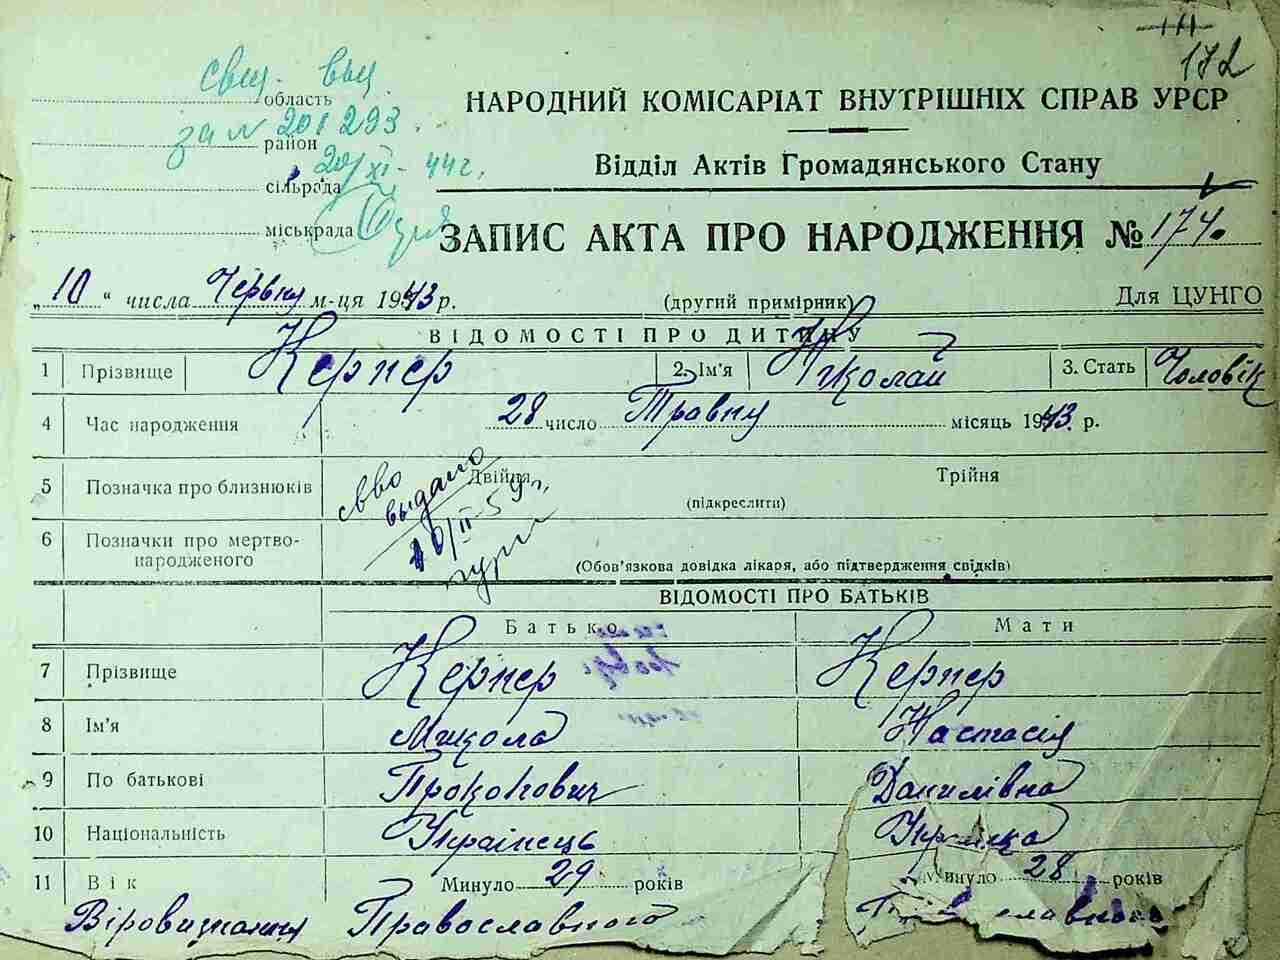 172
свщ. выд.
область
за N 201293
район
20/XI - 44 г.
сільрада
міськрада
НАРОДНИЙ КОМІСАРІАТ ВНУТРІШНІХ СПРАВ УРСР
Відділ Актів Громадянського Стану
ЗАПИС АКТА ПРО НАРОДЖЕННЯ № 174.
„10“ числа Червня м-ця 1943 р.
(другий примірник)
Для ЦУНГО
ВІДОМОСТІ ПРО ДИТИНУ
1 Прізвище Кернер 2. Ім'я Николай 3. Стать Чоловік
4 Час народження 28 число Травня місяць 1943 р.
5 Позначка про близнюків Двійня Трійня
(підкреслити)
свво выдано
10/II-59 г.
6 Позначки про мертво-
народженого
(Обов'язкова довідка лікаря, або підтвердження свідків)
ВІДОМОСТІ ПРО БАТЬКІВ
Батько Мати
7 Прізвище Кернер Кернер
8 Ім'я Микола Настасія
9 По батькові Прокопович Данилівна
10 Національність Українець Українка
11 Вік Минуло 29 років Минуло 28 років
Віровизнання Православного Православного